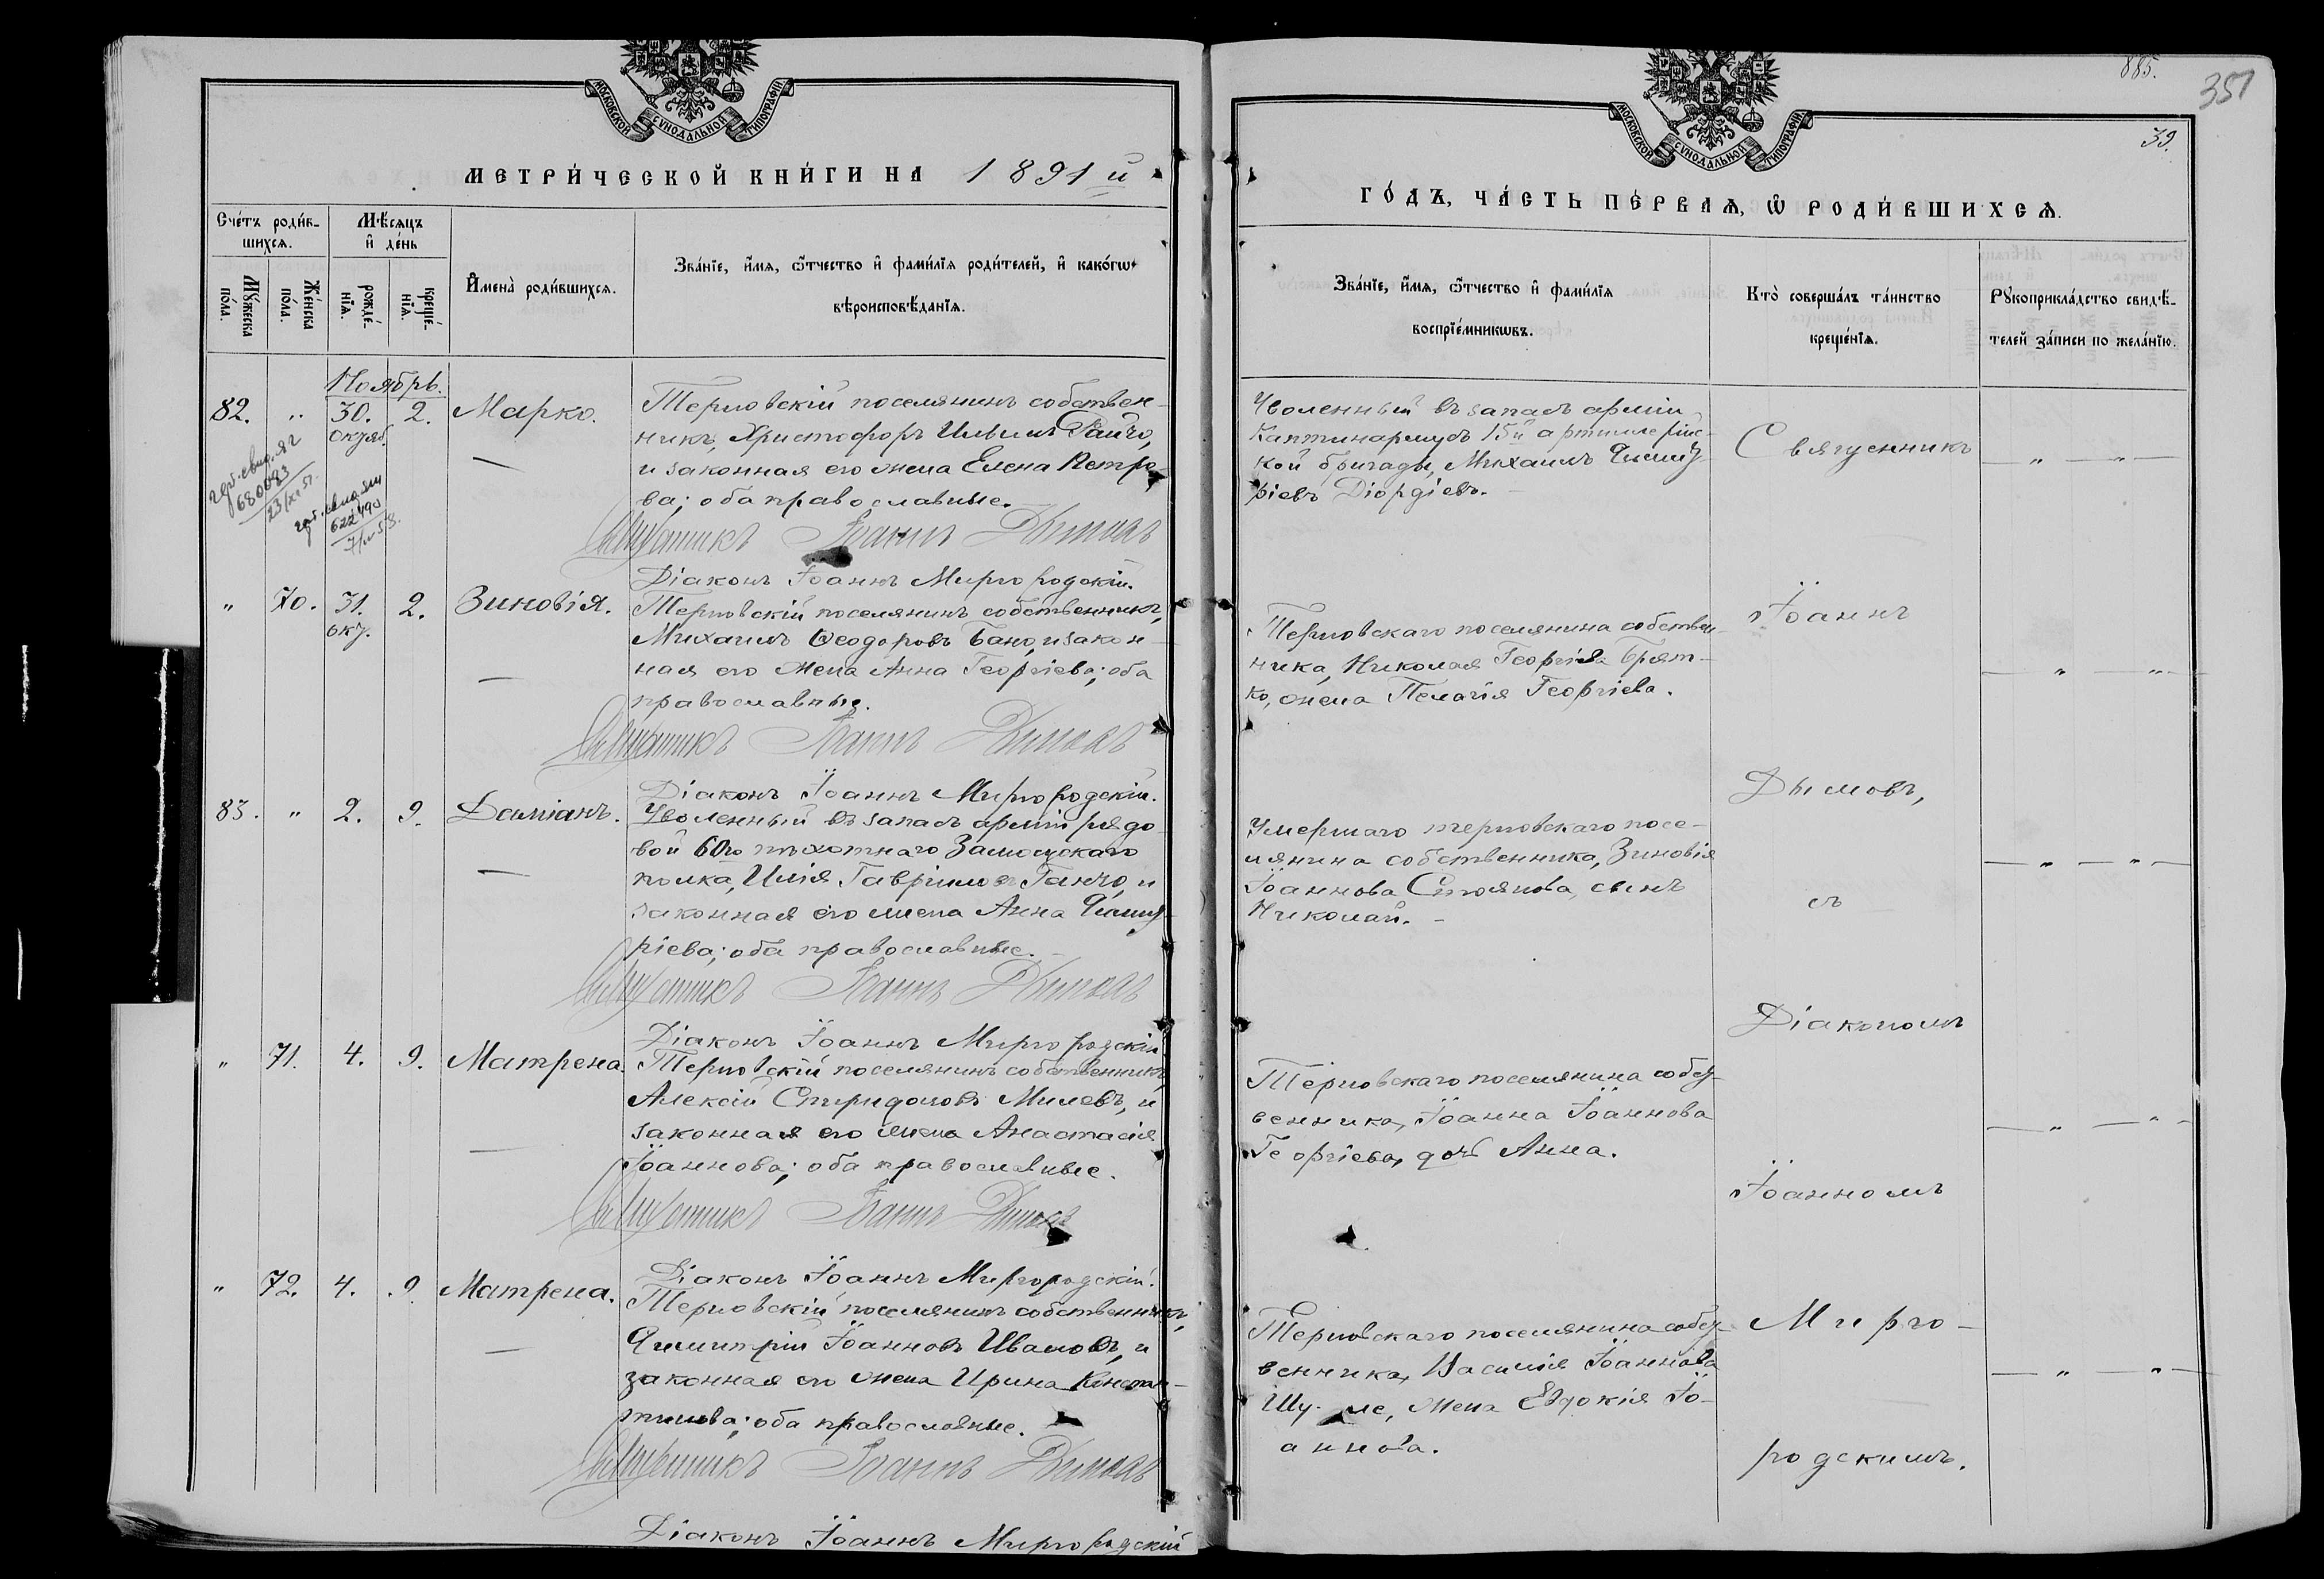 МОСКОВСКОЙ СѴНОДАЛЬНОЙ ТИПОГРАФІИ.
МЕТРИ́ЧЕСКОЙ КНИ́ГИ НА 1891 й
Сче́тъ роди́в-
шихсѧ.
Мѣ́сѧцъ
и҆ де́нь
Мꙋ́жеска
по́ла.
Же́нска
по́ла.
рожде́-
нїѧ.
креще́-
нїѧ.
И҆мена̀ роди́вшихсѧ.
Зва́нїе, и҆́мѧ, ѻ҆́тчество и҆ фами́лїѧ роди́телей, и҆ како́гѡ
вѣроисповѣ́данїѧ.
Ноябрь.
82. „ 30. 2. Марко.
октяб.
680083
23/XI 51.
622490
Терновскій поселянинъ собствен-
никъ, Христофоръ Ильинъ Ганчо,
и законная его жена Елена Петро-
ва; оба православные.
Священникъ Іоаннъ Дымовъ
Діаконъ Іоаннъ Миргородскій.
„ 70. 31. 2. Зиновія.
окт.
Терновскій поселянинъ собственникъ,
Михаилъ Ѳеодоровъ Бано, и закон-
ная его жена Анна Георгіева; оба
православные.
Священникъ Іоаннъ Дымовъ
Діаконъ Іоаннъ Миргородскій.
83. „ 2. 9. Даміанъ.
Уволенный въ запасъ арміи рядо-
вой 60го пѣхотнаго Замосцскаго
полка, Илія Гавріиловъ Ганчо, и
законная его жена Анна Димит-
ріева; оба православные.
Священникъ Іоаннъ Дымовъ
Діаконъ Іоаннъ Миргородскій
„ 71. 4. 9. Матрена.
Терновскій поселянинъ собственникъ,
Алексій Спиридоновъ Милевъ, и
законная его жена Анастасія
Іоаннова; оба православные.
Священникъ Іоаннъ Дымовъ
Діаконъ Іоаннъ Миргородскій.
„ 72. 4. 9. Матрена.
Терновскій поселянинъ собственникъ,
Димитрій Іоанновъ Ивановъ, и
законная его жена Ирина Констан-
тинова; оба православные.
Священникъ Іоаннъ Дымовъ
Діаконъ Іоаннъ Миргородскій
885.
351
39.
МОСКОВСКОЙ СѴНОДАЛЬНОЙ ТИПОГРАФІИ.
ГО́ДЪ, ЧА́СТЬ ПЕ́РВАѦ, Ѽ РОДИ́ВШИХСѦ.
Зва́нїе, и҆́мѧ, ѻ҆́тчество и҆ фами́лїѧ
воспрїе́мникѡвъ.
Кто̀ соверша́лъ та́инство
креще́нїѧ.
Рꙋкоприкла́дство свидѣ́-
телей за́писи по жела́нїю.
Уволенный въ запасъ арміи
Каптинармусъ 15й артиллерійс-
кой бригады, Михаилъ Димит-
ріевъ Діордіевъ.
Терновскаго поселянина собствен-
ника, Николая Георгіева Брят-
ко, жена Пелагія Георгіева.
Умершаго терновскаго посе-
лянина собственника, Зиновія
Іоаннова Стоянова, сынъ
Николай.
Терновскаго поселянина собст-
венника, Іоанна Іоаннова
Георгіева, дочь Анна.
Терновскаго поселянина собст-
венника, Василія Іоаннова
жена Евдокія Іо-
аннова.
Священникъ
Іоаннъ
Дымовъ,
съ
Діакономъ
Іоанномъ
Мирго-
родскимъ.